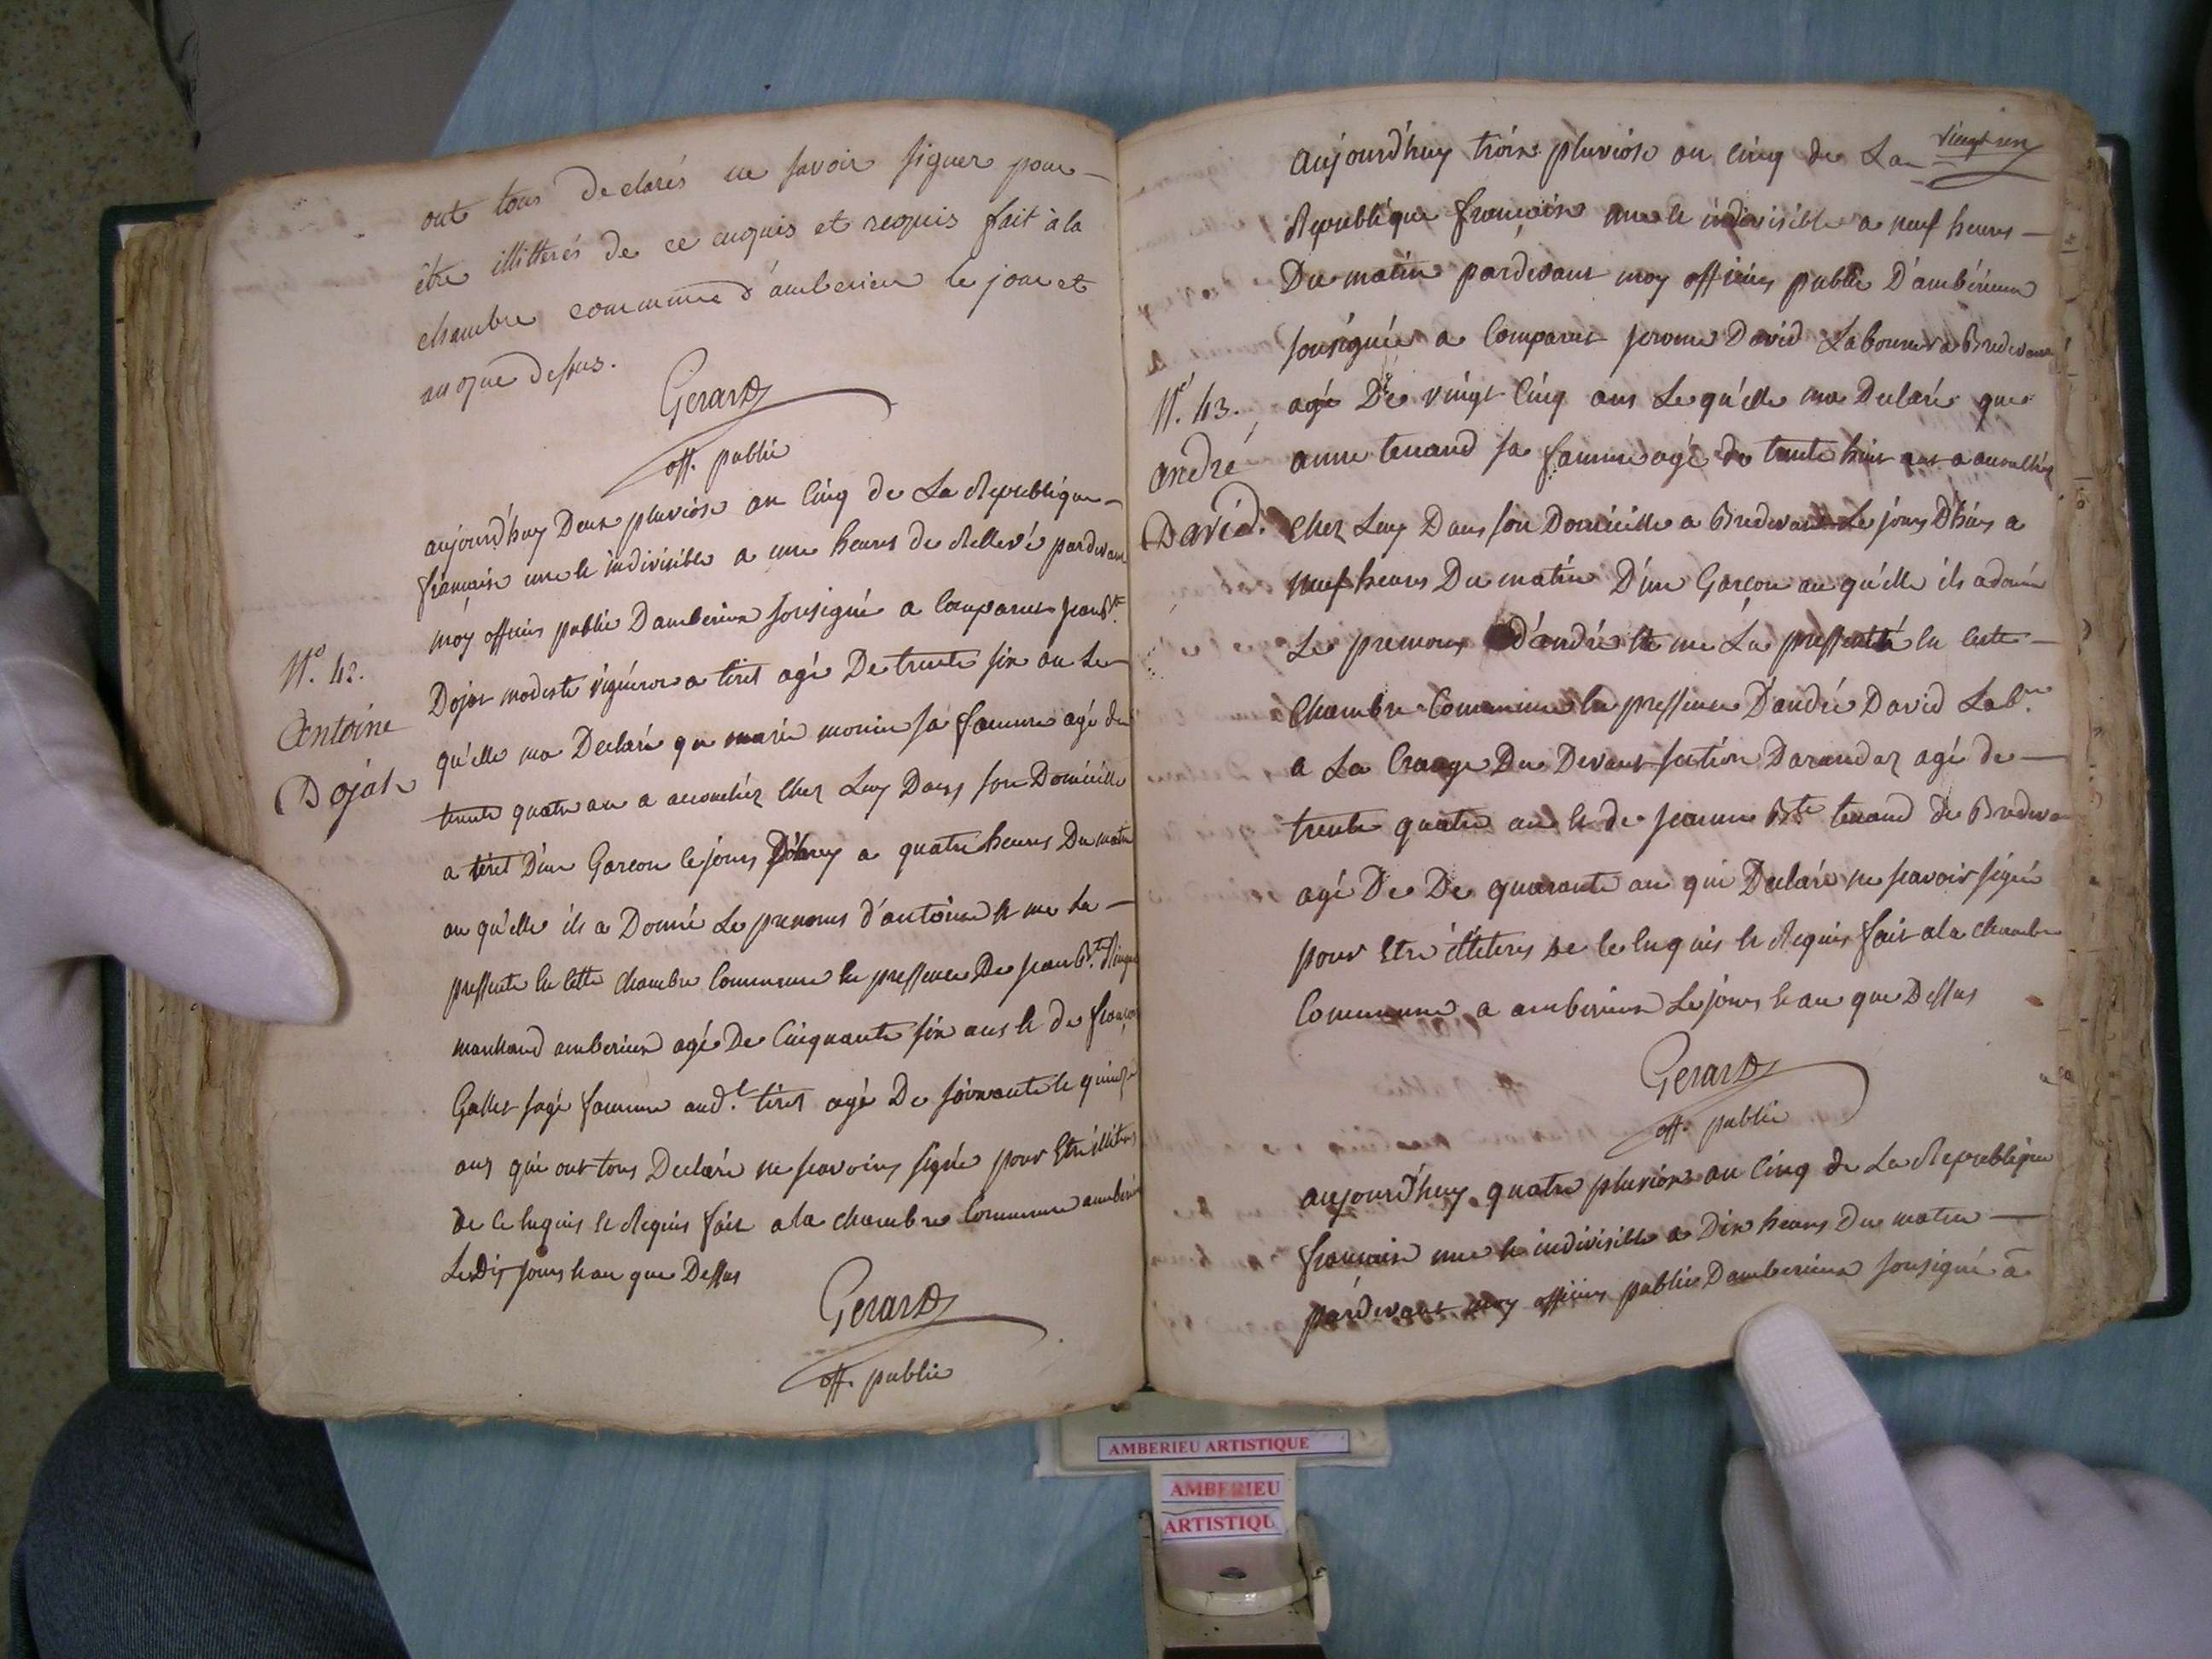 ont tous declarés ne savoir signer pour
être illitterés de ce enquis et requis fait à la
chambre commune d'amberieu le jour et
an que dessus.
Gerard
off. public
aujourd'huy Deux pluviose an Cinq de La Republique
francaise une et indivisible a une heures de Rellevé pardevant
moy officier public D'amberieux sousigné a Comparut jean Bte
N°. 42.
Antoine
Dojat
Dojat modeste vigneron a tiret agé De trente six an Le
qu'elle ma Declaré que marie monin sa famme agé de
trente quatre an a accouchéz Chez Luy Dans son Domicille
a tiret D'un Garcon le jours D'huy a quatre heures Du matin
au qu'elle ils a Donné Le prenoms d'antoine et me La
pressente en Cette Chambre Commune en pressence De jean Bte
marchand amberieux agé De Cinquante six ans et de
Gallet sage famme aud.t tiret agé De soixante et quinze
ans qui ont tous Declaré ne scavoirs signé pour Etre
de Ce Enquis et Requis fait a la chambre Commune
Ledit jours et an que Dessus
Gerard
off. public
vingt un
aujourd'huy trois pluviose an cinq de La
Republique francaise une et indivisible a neuf heures
Du matin pardevant moy officier public D'ambérieux
sousignée a Comparut jerome David Laboureur a Bredevant
N°. 43.
andré
David.
agé De vingt Cinq ans Le qu'elle ma Declaré que
anne tenand sa famme agé de trente huit ans a accouchéz
Chez Luy Dans son Domicille a Bredevant Le jours D'huy a
neuf heures Du matin D'un Garcon au qu'elle ils a donné
Le prenoms d'andré et me La pressenté en cette
Chambre Commune en pressence D'andré David Lab.r
a La Du Devant section Darandaz agé de
trente quatre an et de jeanne Bte tenand de
agé De De quarante an qui Declaré ne scavoir signé
pour Etre de Ce Enquis et Requis fait a la chambre
Commune a amberieux Le jours et an que Dessus
Gerard
off. public
aujourd'huy quatre pluviose an Cinq de La Republique
francaise une et indivisible a Dix heures Du matin
pardevant moy officier public D'amberieux sousigné a
AMBERIEU ARTISTIQUE
AMBERIEU
ARTISTIQU